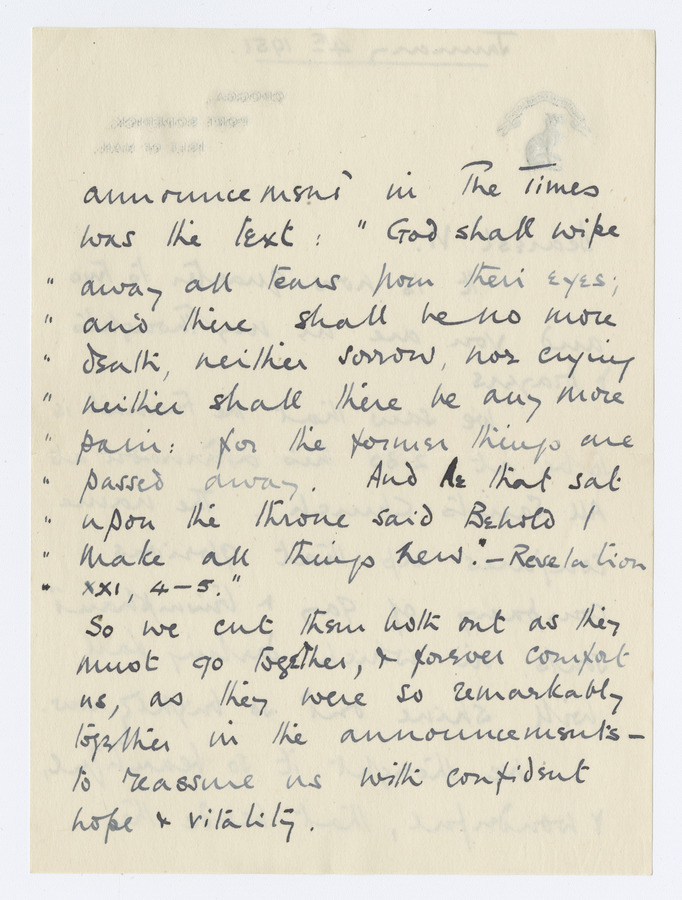 announcement in The Times
was the text: " God shall wipe
" away all tears from their eyes;
" and there shall be no more
" death, neither sorrow, nor crying
" neither shall there be any more
" pain: for the former things are
" passed away. And he that sat
" upon the throne said Behold I
" make all things new." — Revelation
" XXI, 4-5."
So we cut them both out as they
must go together, & forever comfort
us, as they were so remarkably
together in the announcements —
to reassure us with confident
hope & vitality.